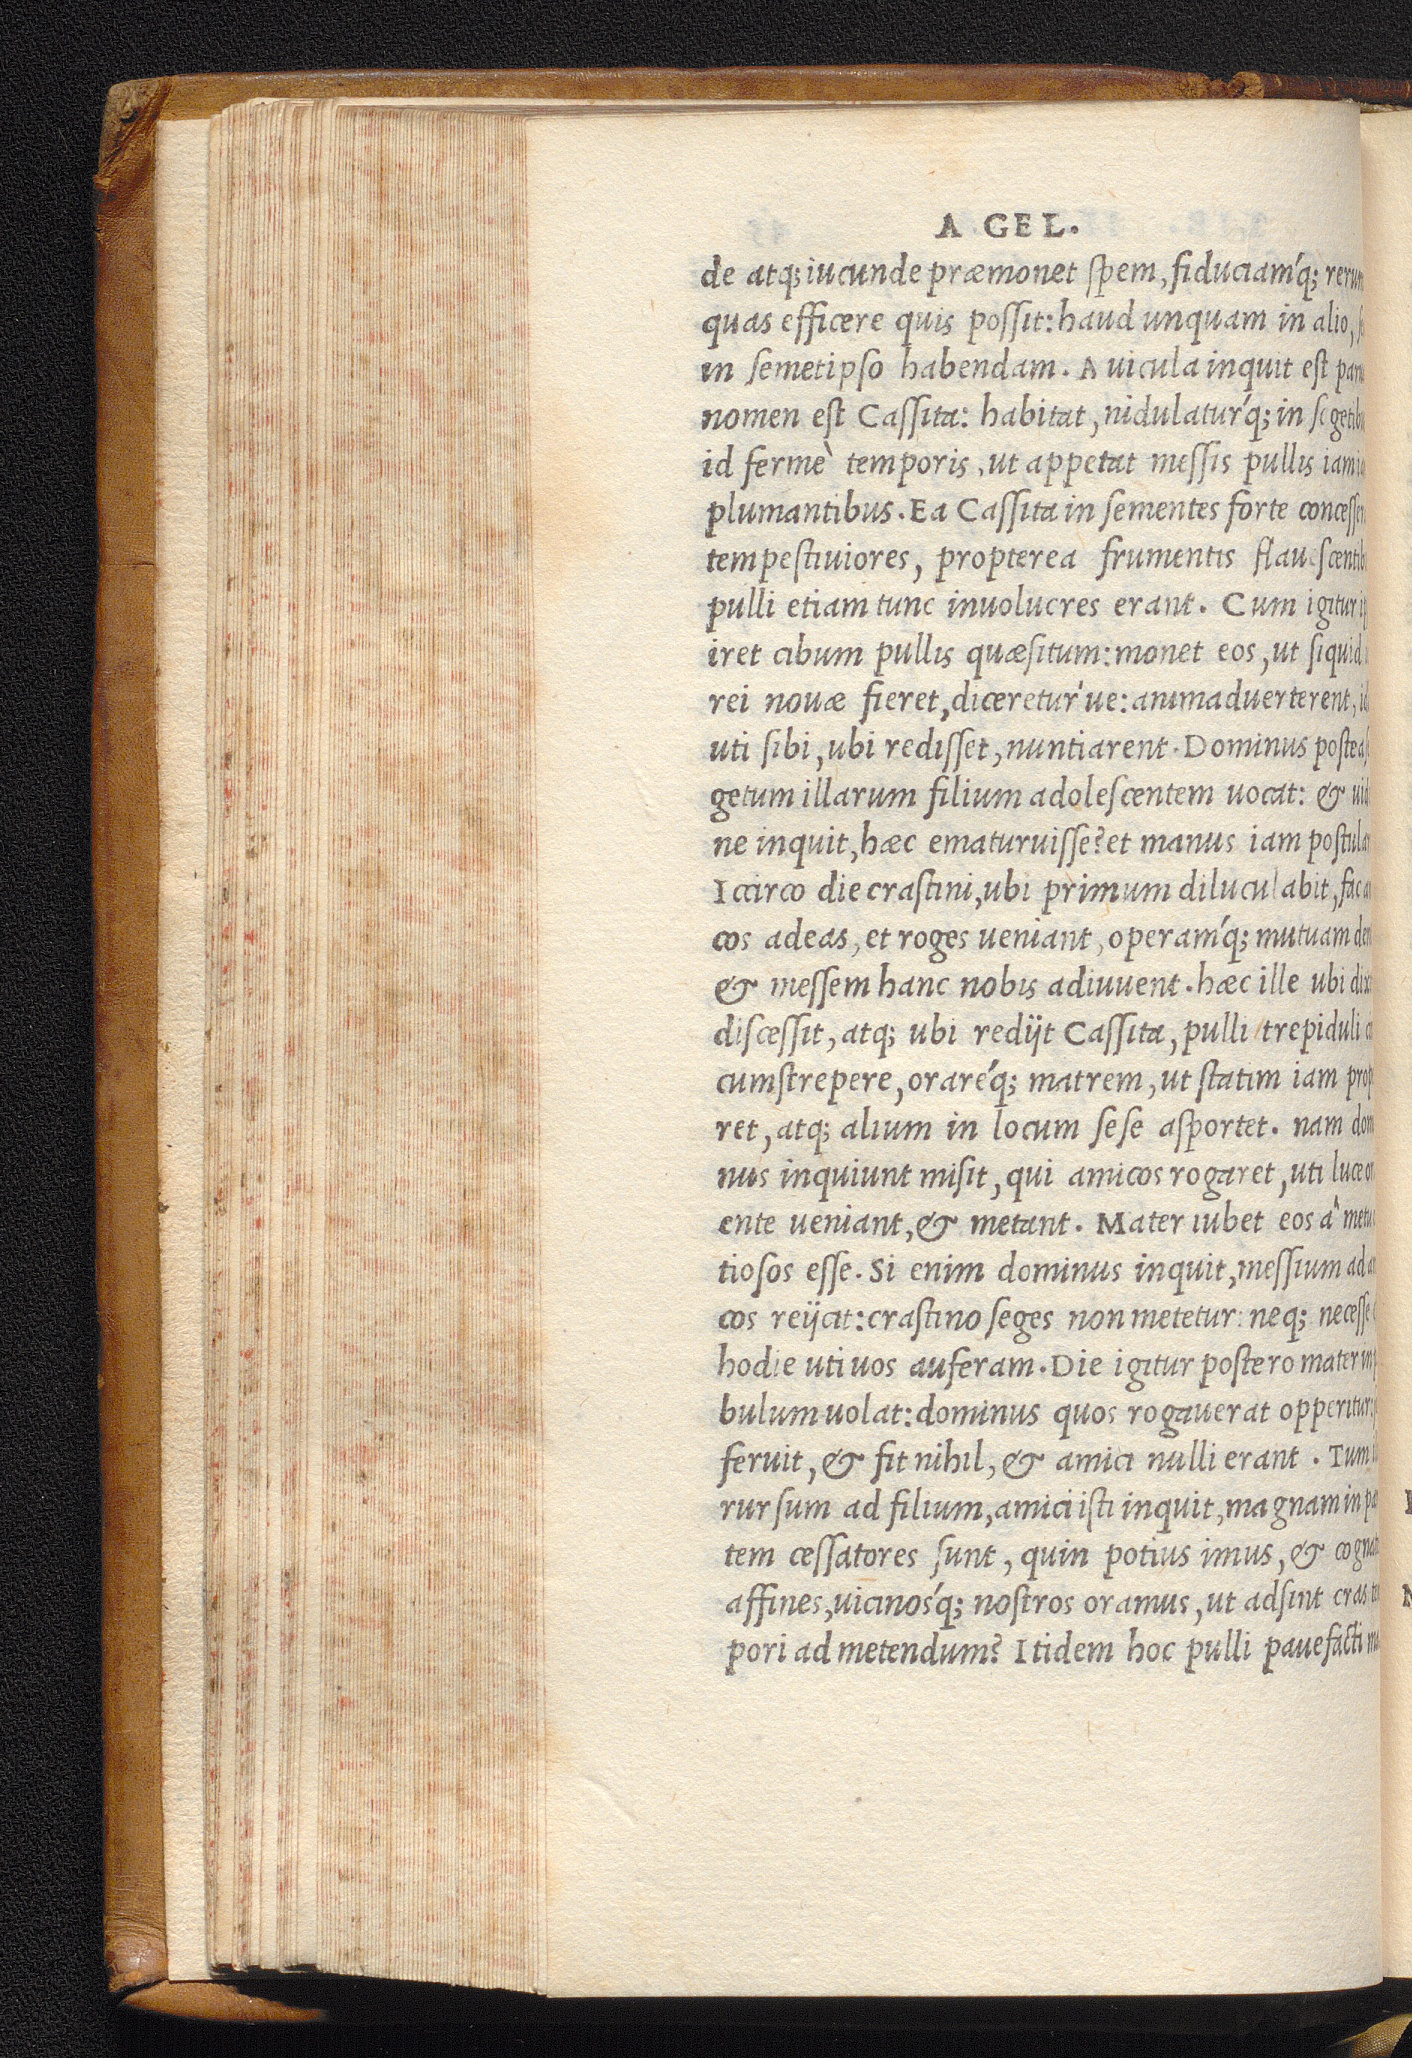 A GEL.
de atq; iucunde præmonet spem, fiduciam'q; rerum
quas efficere quis possit: haud unquam in alio,
in semetipso habendam. Auicula inquit est
nomen est Cassita: habitat, nidulatur'q; in
id fermè temporis, ut appetat messis pullis
plumantibus. Ea Cassita in sementes forte
tempestiuiores, propterea frumentis
pulli etiam tunc inuolucres erant. Cum igitur
iret cibum pullis quæsitum: monet eos, ut siquid
rei nouæ fieret, diceretur'ue: animaduerterent,
uti sibi, ubi redisset, nuntiarent. Dominus postea
getum illarum filium adolescentem uocat: &
ne inquit, hæc ematuruisse? et manus iam
Iccirco die crastini, ubi primum diluculabit, fac
cos adeas, et roges ueniant, operam'q; mutuam
& messem hanc nobis adiuuent. hæc ille ubi
discessit, atq; ubi redijt Cassita, pulli trepiduli
cumstrepere, orare'q; matrem, ut statim iam
ret, atq; alium in locum sese asportet. nam
nus inquiunt misit, qui amicos rogaret, uti luce
ente ueniant, & metant. Mater iubet eos à
tiosos esse. Si enim dominus inquit, messium ad
cos reijcit: crastino seges non metetur: neq; necesse
hodie uti uos auferam. Die igitur postero mater in
bulum uolat: dominus quos rogauerat opperitur:
feruit, & fit nihil, & amici nulli erant. Tum
rursum ad filium, amici isti inquit, magnam in
tem cessatores sunt, quin potius imus, &
affines, uicinos'q; nostros oramus, ut adsint cras
pori ad metendum? Itidem hoc pulli pauefacti